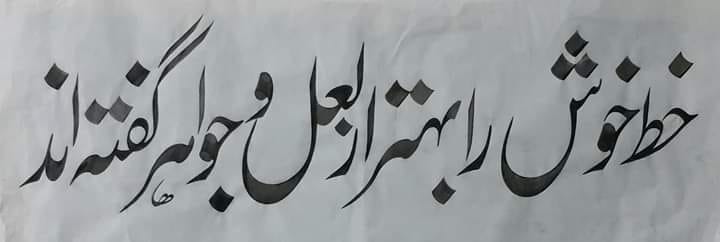 خط خوش را بهتر از لعل و جواهر گفته اند